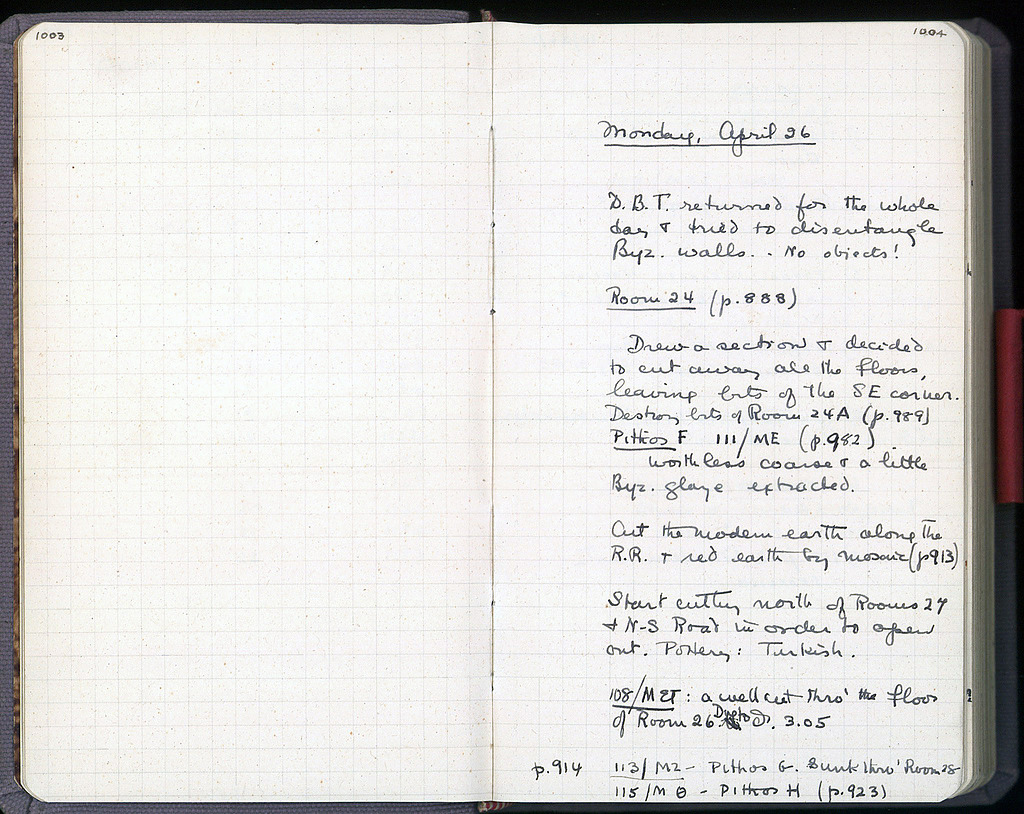 1003
1004
Monday, April 26
D.B.T. returned for the whole
day & tried to disentangle
Byz. walls. . No objects!
Room 24 (p.888)
Drew a section & decided
to cut away all the floors,
leaving bits of the SE corner.
Destroy bits of Room 24A (p.989)
Pithos F 111/ME (p.982)
worthless coarse & a little
Byz. glaze extracted.
Cut the modern earth along the
R.R. & red earth by mosaic (p913)
Start cutting north of Rooms 27
& N-S Road in order to open
out. Pottery: Turkish.
108/M : a well cut thro' the floor
of Room 26. Dug to 3.05
p.914 113/MZ - Pithos G. Sunk thro' Room 28
115/MΘ - Pithos H (p.923)